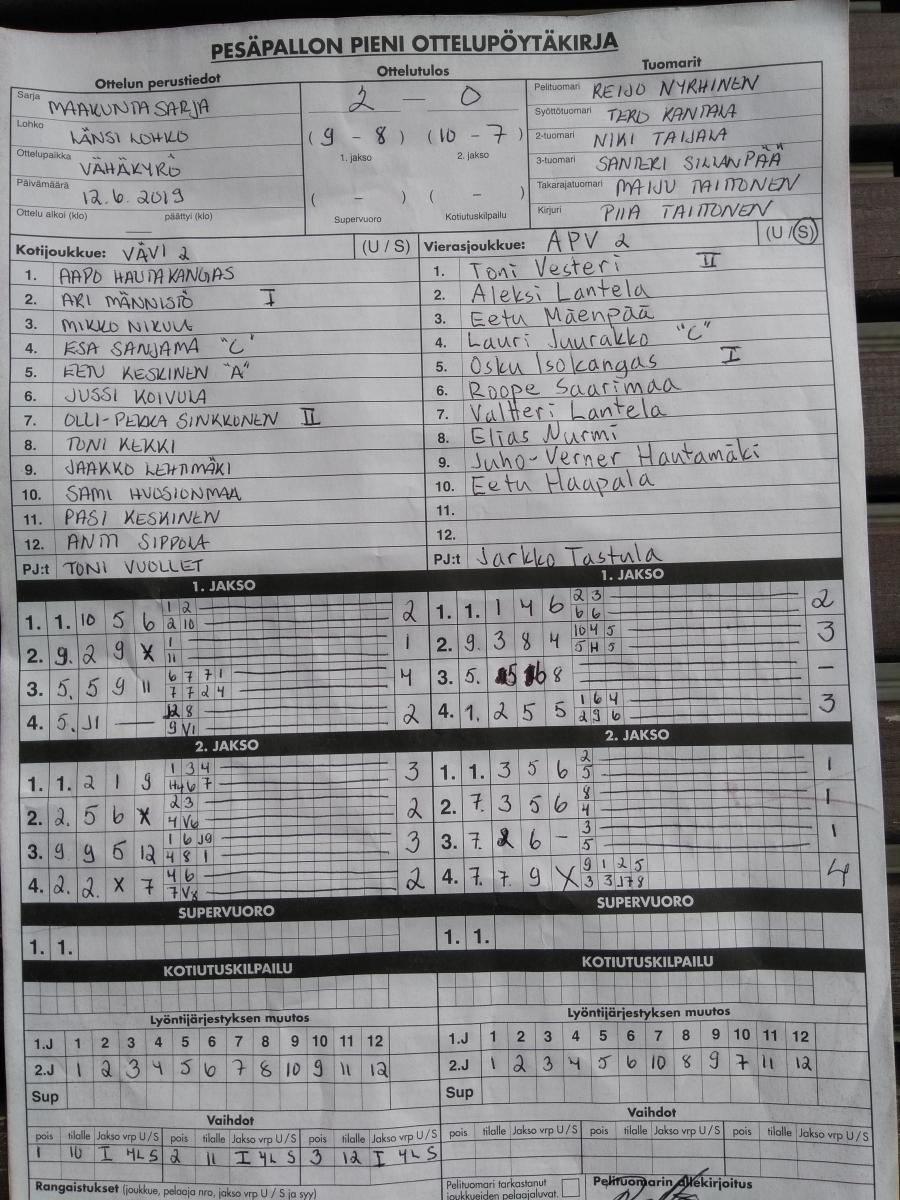 PESÄPALLON PIENI OTTELUPÖYTÄKIRJA
Ottelun perustiedot
Sarja MAAKUNTASARJA
Lohko LÄNSI LOHKO
Ottelupaikka VÄHÄKYRÖ
Päivämäärä 12.6.2019
Ottelu alkoi (klo) päättyi (klo)
Ottelutulos
2 — 0
(9 - 8) (10 - 7)
1. jakso 2. jakso
( - ) ( - )
Supervuoro Kotiutuskilpailu
Tuomarit
Pelituomari REIJO NYRHINEN
Syöttötuomari TERO KANTALA
2-tuomari NIKI TAIJALA
3-tuomari SANTERI SILLANPÄÄ
Takarajatuomari MAIJU TAITTONEN
Kirjuri PIIA TAITTONEN
Kotijoukkue: VÄVI 2 (U / S)
1. AAPO HAUTAKANGAS
2. ARI MÄNNISTÖ I
3. MIKKO NIKULA
4. ESA SANJAMA "C"
5. EETU KESKINEN "A"
6. JUSSI KOIVULA
7. OLLI-PEKKA SINKKONEN II
8. TONI KEKKI
9. JAAKKO LEHTIMÄKI
10. SAMI HUOSIONMAA
11. PASI KESKINEN
12. ANTTI SIPPOLA
PJ:t TONI VUOLLET
Vierasjoukkue: APV 2 (U / S)
1. Toni Vesteri II
2. Aleksi Lantela
3. Eetu Mäenpää
4. Lauri Juurakko "C"
5. Osku Isokangas I
6. Roope Saarimaa
7. Valtteri Lantela
8. Elias Nurmi
9. Juho-Verner Hautamäki
10. Eetu Haapala
11.
12.
PJ:t Jarkko Tastula
1. JAKSO
1. 1. 10 5 6 1 2 2
2 10
2. 9. 2 9 X 1 1
11
3. 5. 5 9 11 6 7 7 1 4
7 7 2 4
4. 5. 11 — 12 8 2
9 V1
1. JAKSO
1. 1. 1 4 6 2 3 2
6 6
2. 9. 3 8 4 10 4 5 3
5 H 5
3. 5. 8 –
4. 1. 2 5 5 1 6 4 3
2 9 6
2. JAKSO
1. 1. 2 1 9 1 3 4 3
H4 6 7
2. 2. 5 6 X 2 3 2
4 V6
3. 9 9 5 12 1 6 J9 3
4 8 1
4. 2. 2. X 7 4 6 2
7 V8
2. JAKSO
1. 1. 3 5 6 2 1
5
2. 7. 3 5 6 8 1
4
3. 7. 2 6 – 3 1
5
4. 7. 7 9 X 9 1 2 5 4
3 3 J7 8
SUPERVUORO
1. 1.
SUPERVUORO
1. 1.
KOTIUTUSKILPAILU
KOTIUTUSKILPAILU
Lyöntijärjestyksen muutos
1.J 1 2 3 4 5 6 7 8 9 10 11 12
2.J 1 2 3 4 5 6 7 8 10 9 11 12
Sup
Lyöntijärjestyksen muutos
1.J 1 2 3 4 5 6 7 8 9 10 11 12
2.J 1 2 3 4 5 6 10 8 9 7 11 12
Sup
Vaihdot
pois tilalle Jakso vrp U / S pois tilalle Jakso vrp U / S pois tilalle Jakso vrp U / S
1 10 I 4L S 2 11 I 4L S 3 12 I 4L S
Vaihdot
pois tilalle Jakso vrp U / S pois tilalle Jakso vrp U / S pois tilalle Jakso vrp U / S
Rangaistukset (joukkue, pelaaja nro, jakso vrp U / S ja syy)
Pelituomari tarkastanut
joukkueiden pelaajaluvat.
Pelituomarin allekirjoitus